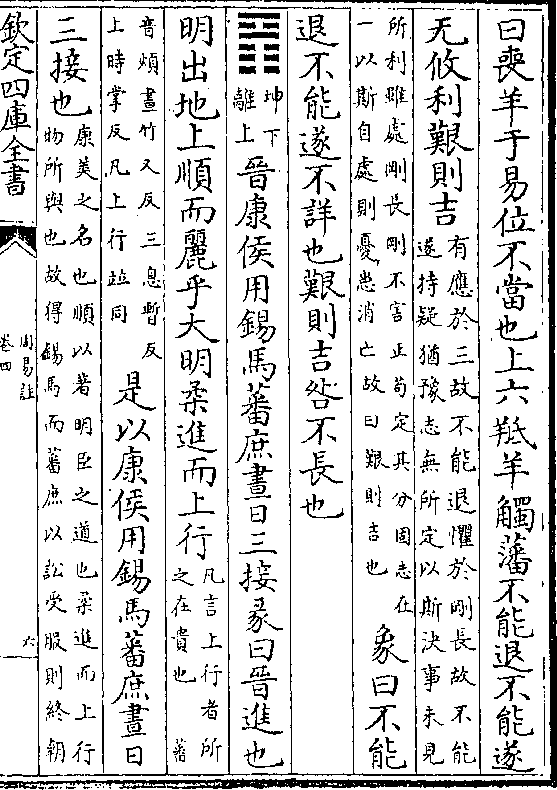 曰喪羊于易位不當也上六羝羊觸藩不能退不能遂
无攸利艱則吉
有應於三故不能退懼於剛長故不能
遂持疑猶豫志無所定以斯決事未見
所利雖處剛長剛不害正苟定其分固志在
一以斯自處則憂患消亡故曰艱則吉也
象曰不能
退不能遂不詳也艱則吉咎不長也
䷢
坤下
離上
晉康侯用錫馬蕃庶晝日三接彖曰晉進也
明出地上順而麗乎大明柔進而上行
凡言上行者所
之在貴也 蕃
音煩晝竹又反三息暫反
上時掌反凡上行並同
是以康侯用錫馬蕃庶晝日
三接也
康美之名也順以著明臣之道也柔進而上行
物所與也故得錫馬而蕃庶以訟受服則終朝
欽定四庫全書
周易註
卷四
六